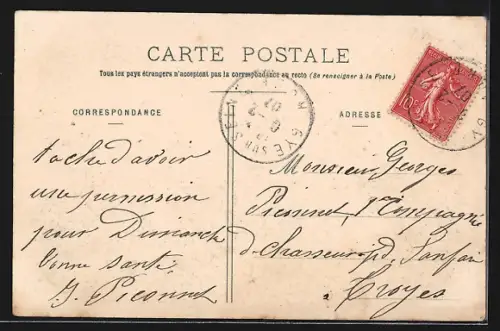 CARTE POSTALE
Tous les pays étrangers n'acceptent pas la correspondance au recto (Se renseigner à la Poste)
CORRESPONDANCE
tache d'avoir
une permission
pour Dimanche
bonne santé
G. Piconnet
GYE SUR SEINE
ADRESSE
Monsieur Georges
Piconnet, 1e Compagnie
de Chasseur
Troyes
10c